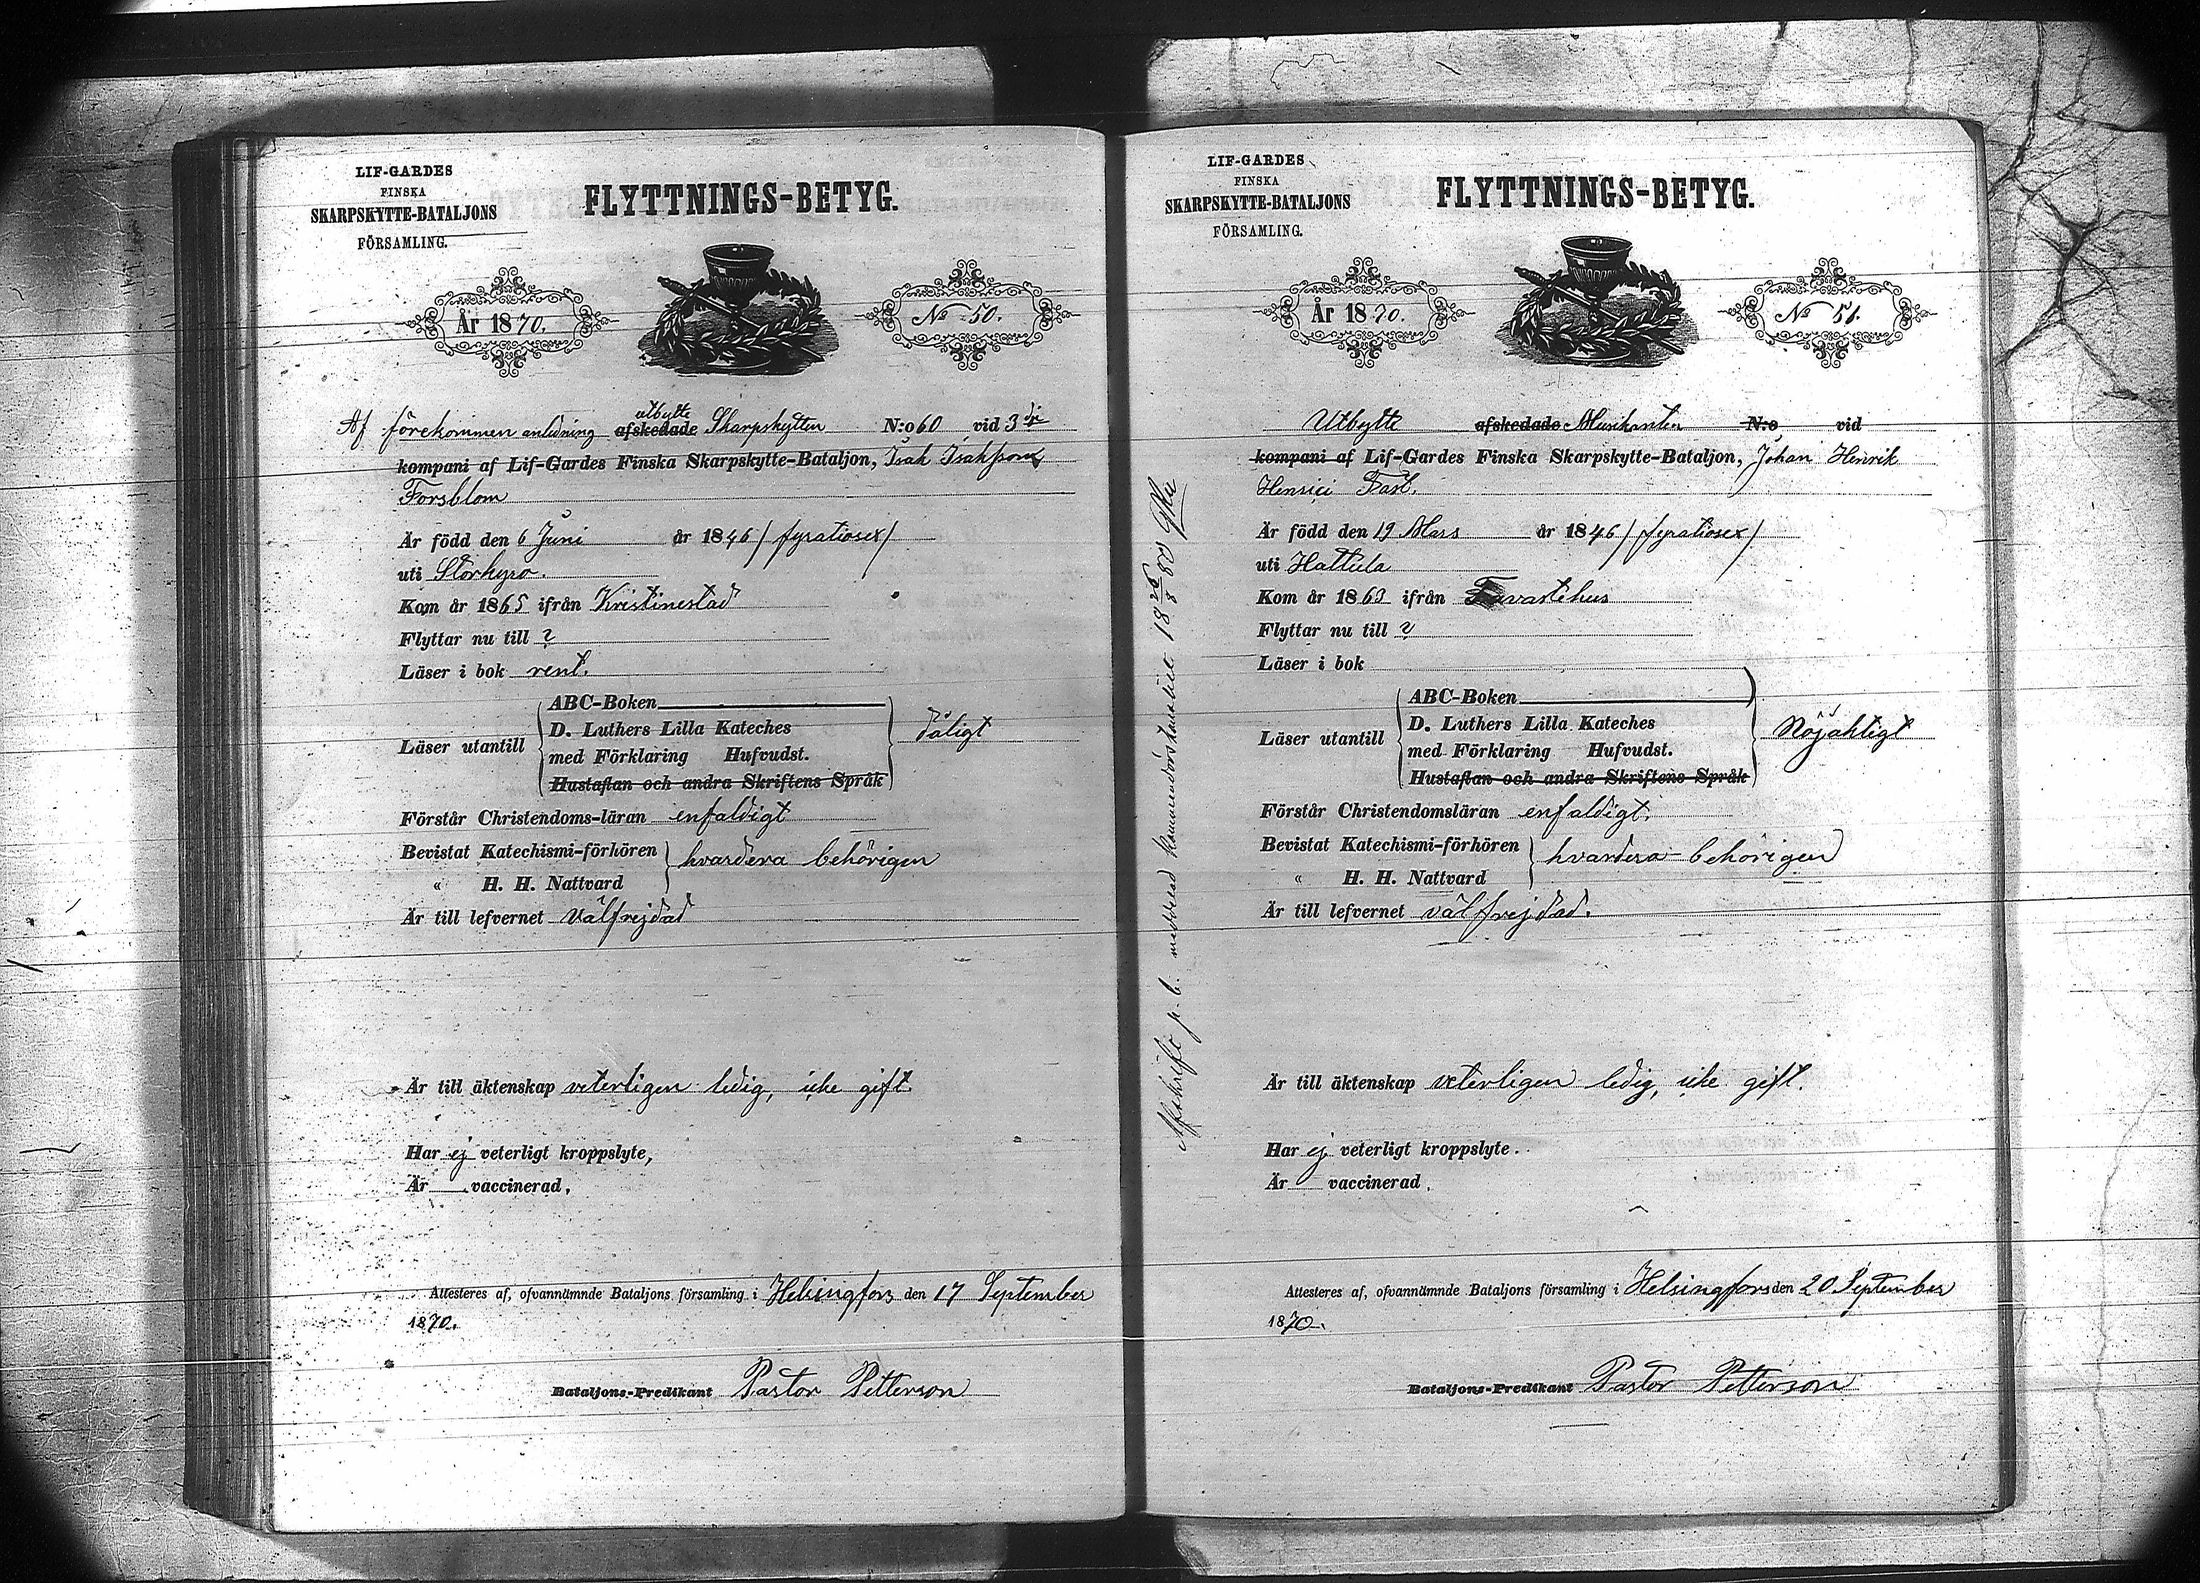 LIF-GARDES
FINSKA
SKARPSKYTTE-BATALJONS
FÖRSAMLING.
FLYTTNINGS-BETYG.
År 1870.
No 50.
Af förekommen anledning utbytte afskedade Skarpskytten N:o 60 vid 3dje
kompani af Lif-Gardes Finska Skarpskytte-Bataljon, Isak Isaksson
Forsblom
Är född den 6 Juni år 1846 / fyratiosex /
uti Storkyro.
Kom år 1865 ifrån Kristinestad
Flyttar nu till ?
Läser i bok rent.
Läser utantill
ABC-Boken
D. Luthers Lilla Kateches
med Förklaring Hufvudst.
Hustaflan och andra Skriftens Språk
dåligt
Förstår Christendoms-läran enfaldigt
Bevistat Katechismi-förhören
" H. H. Nattvard
hvardera behörigen
Är till lefvernet välfrejdad
Är till äktenskap veterligen ledig, icke gift.
Har ej veterligt kroppslyte,
Är vaccinerad.
Attesteres af, ofvannämnde Bataljons församling i Helsingfors den 17 September
1870.
Bataljons-Predikant Pastor Petterson
LIF-GARDES
FINSKA
SKARPSKYTTE-BATALJONS
FÖRSAMLING.
FLYTTNINGS-BETYG.
År 1870.
No 51.
Utbytte afskedade Musikanten N:o vid
kompani af Lif-Gardes Finska Skarpskytte-Bataljon, Johan Henrik
Henrici Fast.
Är född den 19 Mars år 1846 / fyratiosex /
uti Hattula
Kom år 1863 ifrån Tavastehus
Flyttar nu till ?
Läser i bok
Läser utantill
ABC-Boken
D. Luthers Lilla Kateches
med Förklaring Hufvudst.
Hustaflan och andra Skriftens Språk
Nöjaktigt
Förstår Christendomsläran enfaldigt.
Bevistat Katechismi-förhören
" H. H. Nattvard
hvardera behörigen
Är till lefvernet välfrejdad.
Är till äktenskap veterligen ledig, icke gift.
Har ej veterligt kroppslyte.
Är vaccinerad.
Attesteres af, ofvannämnde Bataljons församling i Helsingfors den 20 September
1870.
Bataljons-Predikant Pastor Petterson
Afskrift p. b. meddelad